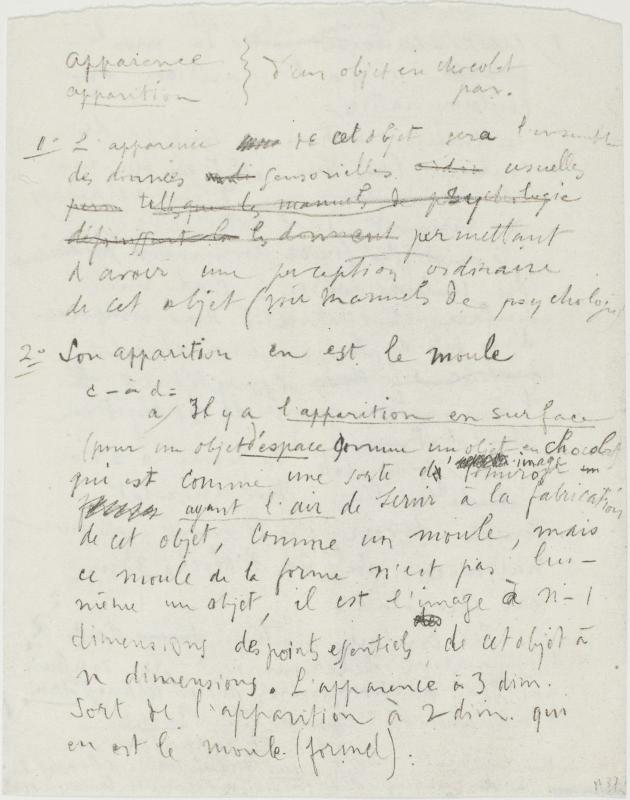 apparence } d'un objet en chocolat
apparition } par.
1° L'apparence de cet objet sera l'ensemble
des données sensorielles usuelles
tellesque les manuels de psychologie
définissent les donnent permettant
d'avoir une perception ordinaire
de cet objet (voir manuels de psychologie)
2° Son apparition en est le moule
c-à d=
a/ Il y a l'apparition en surface
(pour un objet d'espace comme un objet en chocolat)
qui est comme une sorte d' image miroir
ayant l'air de servir à la fabrication
de cet objet, comme un moule, mais
ce moule de la forme n'est pas lui-
même un objet, il est l'image à n-1
dimensions des points essentiels de cet objet à
n dimensions. L'apparence à 3 dim.
sort de l'apparition à 2 dim. qui
en est le moule (formel).